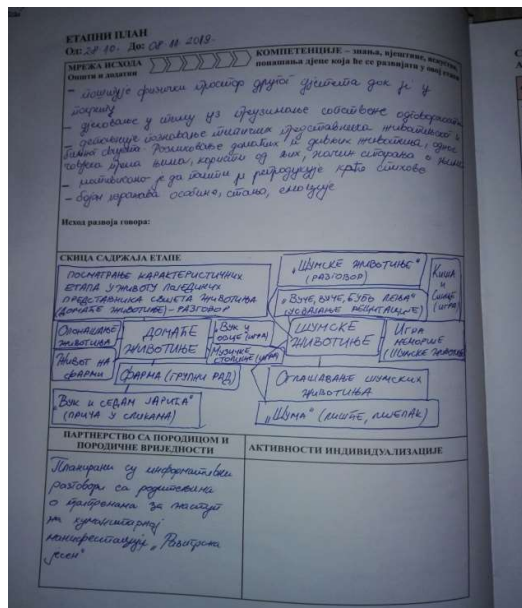 ЕТАПНИ ПЛАН
Од: 28.10. До: 08.11.2019.
МРЕЖА ИСХОДА
Општи и додатни
КОМПЕТЕНЦИЈЕ – знања, вјештине, искуства,
понашања дјеце која ће се развијати у овој етапи
- поштује физички простор другог дјетета док је у
покрету
- дјеловање у тиму уз преузимање сопствене одговорности
- познавање типичних представника животињског и
биљног свијета. Разликовање домаћих и дивљих животиња, однос
човјека према њима, користи од њих, начин старања о њима
- мотивисано је да памти и репродукује кратке стихове
- боље изражава особине, стања, емоције
Исход развоја говора:
СКИЦА САДРЖАЈА ЕТАПЕ
ПОСМАТРАЊЕ КАРАКТЕРИСТИЧНИХ
ЕТАПА У ЖИВОТУ ПОЈЕДИНИХ
ПРЕДСТАВНИКА СВИЈЕТА ЖИВОТИЊА
(ДОМАЋЕ ЖИВОТИЊЕ) - РАЗГОВОР
„ШУМСКЕ ЖИВОТИЊЕ"
(РАЗГОВОР)
КИША
И
СУНЦЕ
(ИГРА)
„ВУЧЕ, ВУЧЕ, БУБО ЛЕЊА"
(УСВАЈАЊЕ РЕЦИТАЦИЈЕ)
ОПОНАШАЊЕ
ЖИВОТИЊА
ДОМАЋЕ
ЖИВОТИЊЕ
„ВУК И
ОВЦЕ (ИГРА)
МУЗИЧКЕ
СТОЛИЦЕ (ИГРА)
ШУМСКЕ
ЖИВОТИЊЕ
ИГРА
МЕМОРИЈЕ
(ШУМСКЕ ЖИВОТИЊЕ)
ЖИВОТ НА
ФАРМИ
ФАРМА (ГРУПНИ РАД)
ОГЛАШАВАЊЕ ШУМСКИХ
ЖИВОТИЊА
„ВУК И СЕДАМ ЈАРИЋА"
(ПРИЧА У СЛИКАМА)
„ШУМА" (ЛИШЋЕ, ЉЕПАК)
ПАРТНЕРСТВО СА ПОРОДИЦОМ И
ПОРОДИЧНЕ ВРИЈЕДНОСТИ
АКТИВНОСТИ ИНДИВИДУАЛИЗАЦИЈЕ
Планирани су информативни
разговори са родитељима
о припремама за наступ
на хуманитарној
манифестацији „Разиграна
јесен"